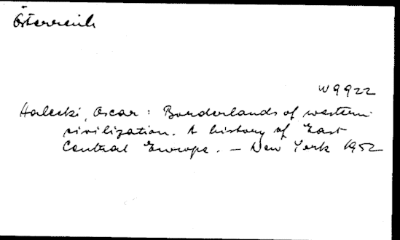 Österreich
W9922
Halecki, Oscar: Borderlands of western
civilization. A history of East
Central Europe. — New York 1952